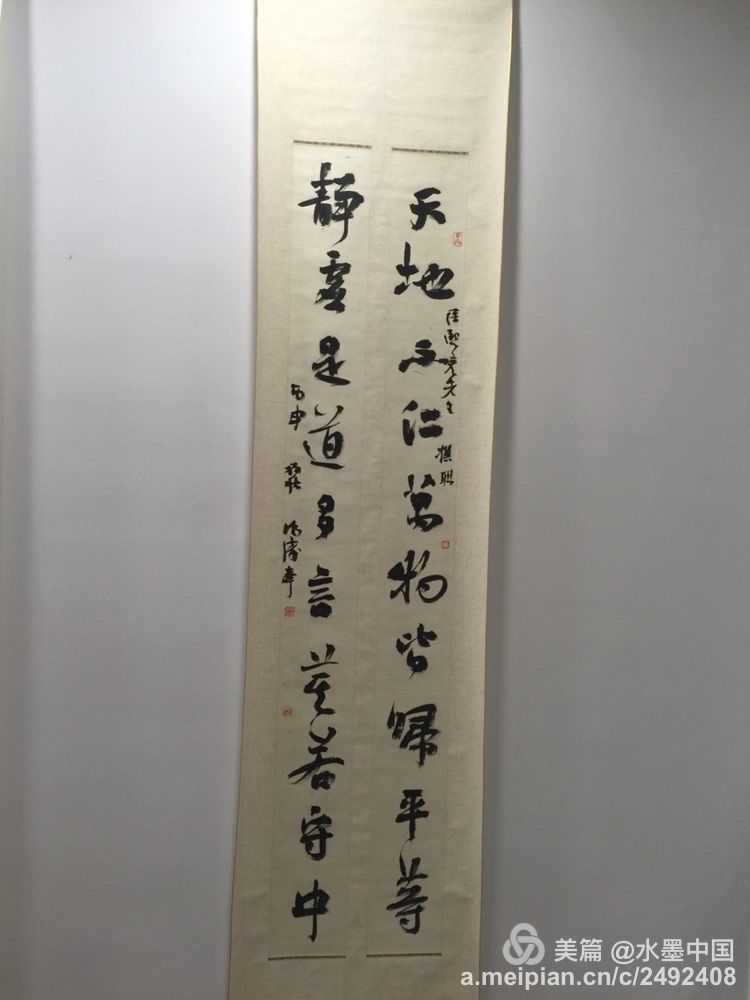 天地不仁萬物皆歸平等
先生
撰聯
靜虛是道多言莫若守中
丙申
美篇 @水墨中国
a.meipian.cn/c/2492408